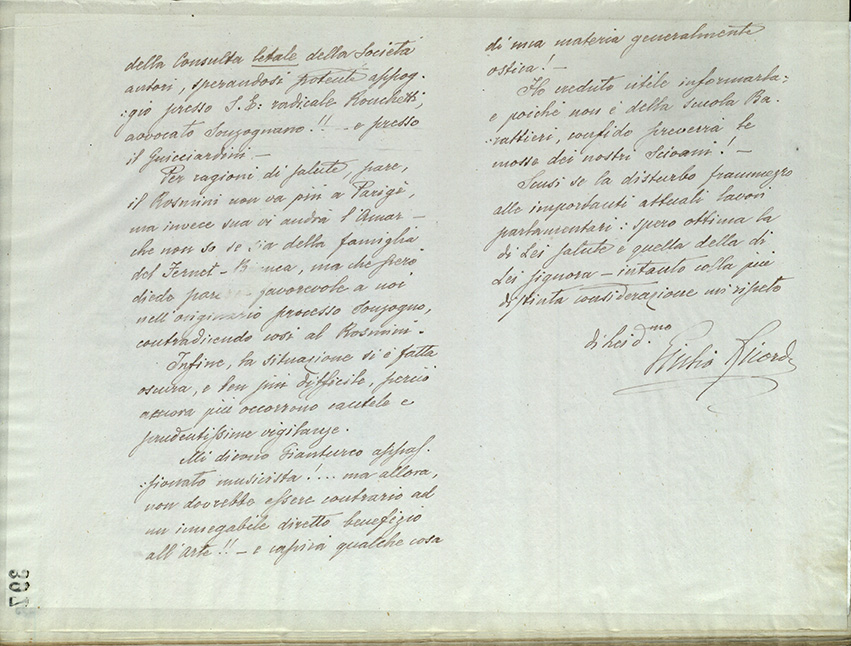 della Consulta letale della Società
autori, sperandosi potente appog-
:gio presso S. E: radicale Ronchetti,
avvocato Sonzognano!! — e presso
il Guicciardini —
Per ragioni di salute, pare,
il Rosmini non va più a Parigi,
ma invece sua vi andrà l'Amar —
che non so se sia della famiglia
del Fernet-Branca, ma che però
diede favorevole a noi
nell'originario processo Sonzogno,
contradicendo così al Rosmini.
Infine, la situazione si è fatta
oscura, e ben più difficile, perciò
ancora più occorrono cautele e
prudentissime vigilanze.
Mi dicono Gianturco appas-
:sionato musicista!... ma allora,
non dovrebbe essere contrario ad
un innegabile diretto benefizio
all'Arte!! — e capirà qualche cosa
di una materia generalmente
ostica! —
Ho creduto utile informarla:
e poichè non è della scuola Ba-
rattieri, confido preverrà le
mosse dei nostri Scioani! —
Scusi se la disturbo frammezzo
alle importanti attuali lavori
parlamentari: spero ottima la
di Lei salute e quella della di
Lei signora — intanto colla più
distinta considerazione mi ripeto
di Lei d.mo
Giulio Ricordi
307